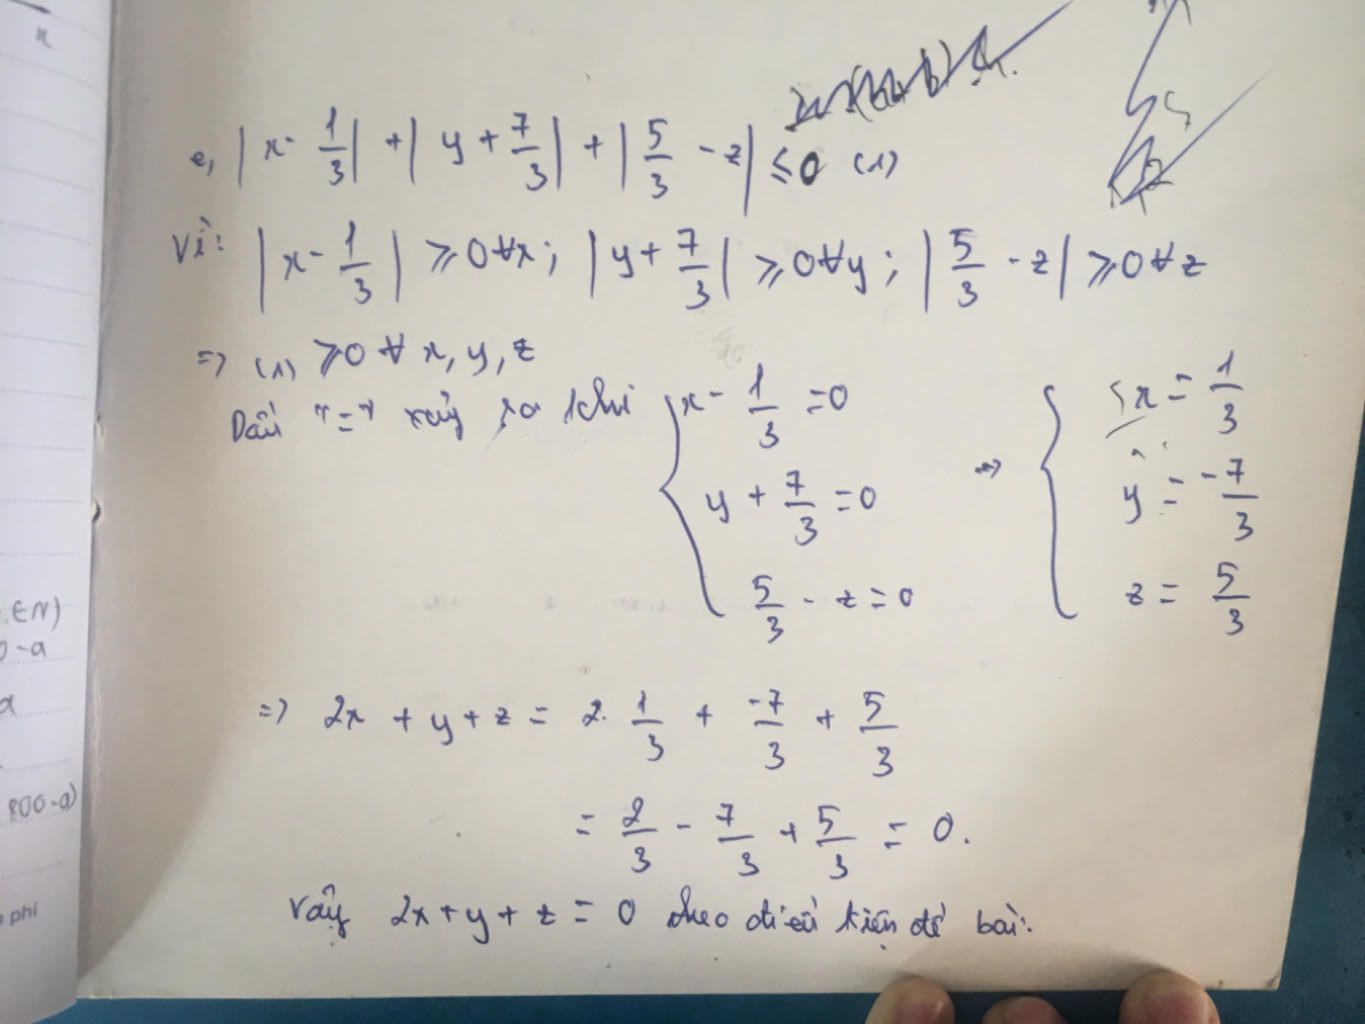 x
e, |x - 1/3| + |y + 7/3| + |5/3 - z| ≤ 0 (1)
Vì: |x - 1/3| ≥ 0 ∀x; |y + 7/3| ≥ 0 ∀y; |5/3 - z| ≥ 0 ∀z
=> (1) ≥ 0 ∀ x, y, z
Dấu "=" xảy ra khi { x - 1/3 = 0 => { x = 1/3
y + 7/3 = 0 y = -7/3
5/3 - z = 0 z = 5/3
=> 2x + y + z = 2. 1/3 + -7/3 + 5/3
= 2/3 - 7/3 + 5/3 = 0.
Vậy 2x + y + z = 0 theo điều kiện đề bài.
∈N)
-a
a
800-a)
phí